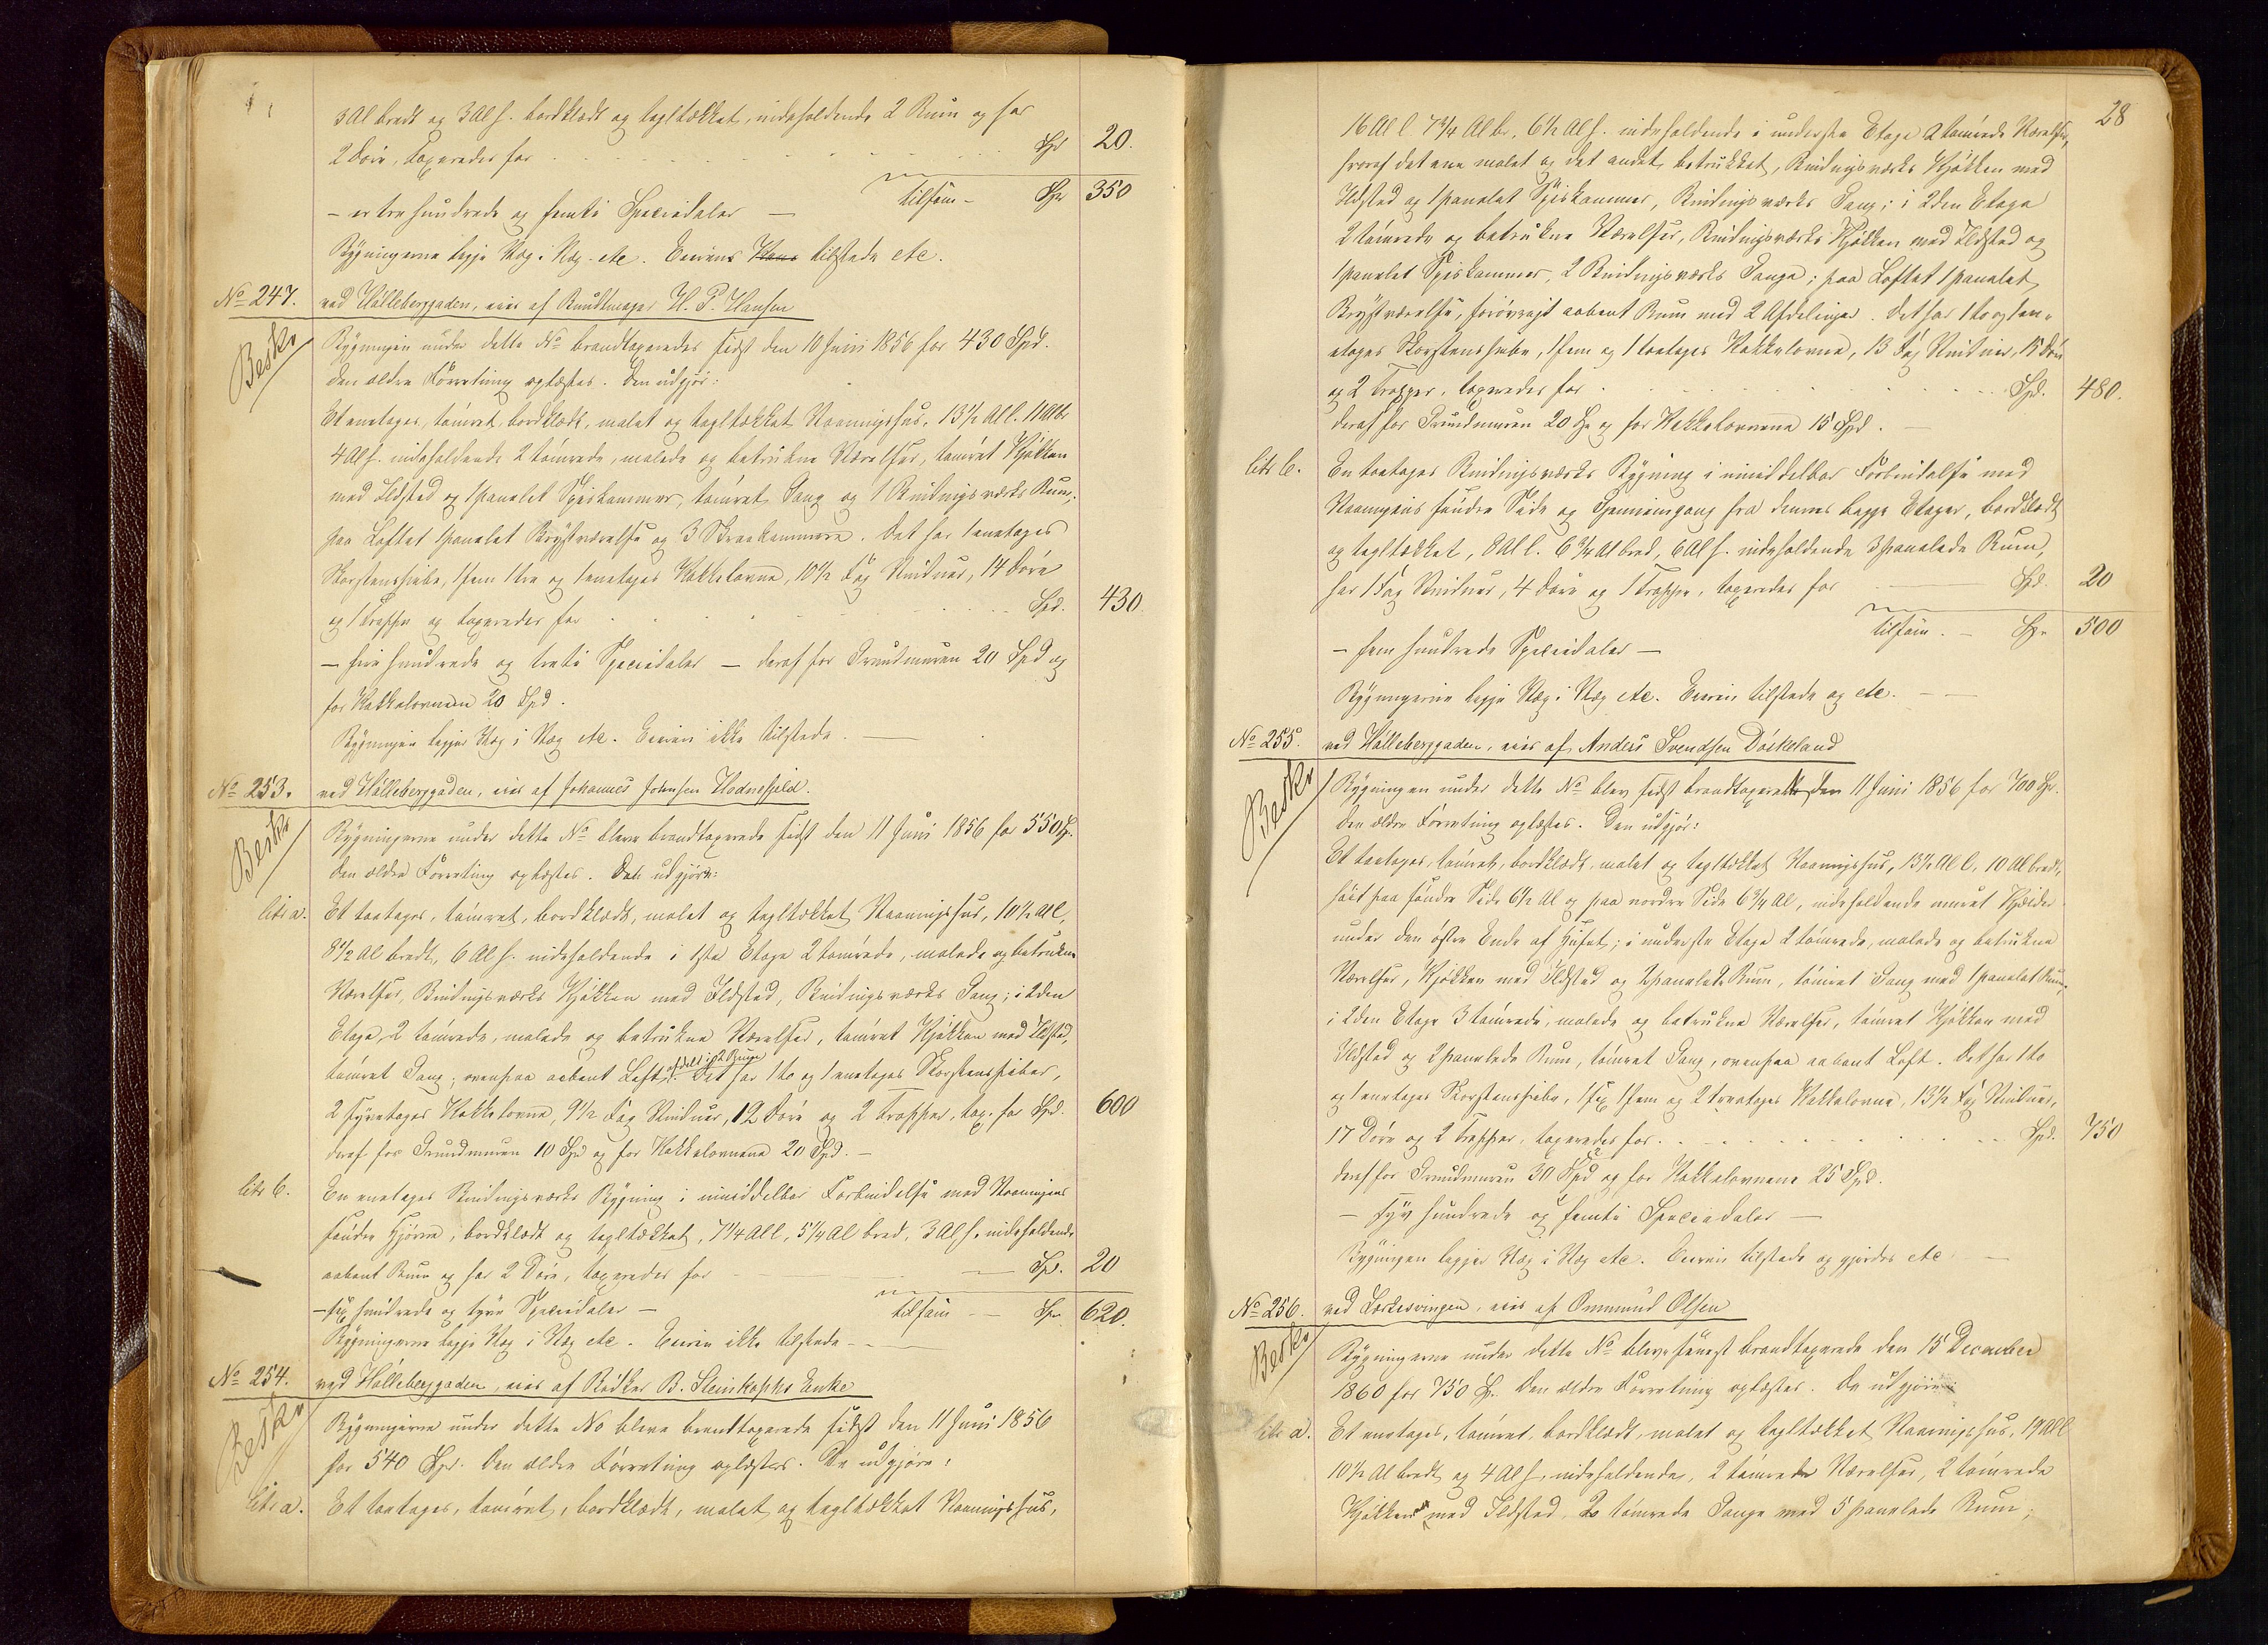 3 Al bredt og 3 Al h. bordklædt og tegltækket, indeholdende 2 Rum og har
2 Döre, taxeredes for Spd 20.
tilsam - Spd 350
- er tre hundrede og femti Speciedaler -
Bygningerne ligge Væg i Væg etc. Eieren's Kone tilstede etc.
No 247. ved Hölleberggaden, eies af Bundtmager H. P. Hansen
Beskr
Bygningen under dette No brandtaxeredes sidst den 10 Juni 1856 for 430 Spd.
den ældre Forretning oplæstes. Den udgjör:
Et enetages, tömret, bordklædt, malet og tegltækket Vaaningshus, 13½ Al l. 11 Al br
4 Al h. indeholdende 2 tömrede, malede og betrukne Værelser, tömret Kjökken
med Ildsted og 1 panelet Spiskammer, tömret Gang og 1 Bindingsværks Rum;
paa Loftet 1 panelet Brystværelse og 3 Skraakammere. Det har 1 enetages
Skorstenspibe, 1 fem 1 tre og 1 enetages Kakkelovne, 10½ Fag Vinduer, 14 Döre
og 1 Trappe og taxeredes for Spd. 430
- fire hundrede og treti Speciedaler - deraf for Grundmuren 20 Spd og
for Kakkelovnene 20 Spd.
Bygningen ligger Væg i Væg etc. Eieren ikke tilstede.
No 253. ved Hölleberggaden, eies af Johannes Johnsen Hodnefjeld.
Beskr
Bygningerne under dette No bleve brandtaxerede sidst den 11 Juni 1856 for 550 Sp.
den ældre Forretning oplæstes. De udgjöre:
litr a. Et toetages, tömret, bordklædt, malet og tegltækket Vaaningshus, 10½ Al l,
8½ Al bredt, 6 Al h. indeholdende i 1ste Etage 2 tömrede, malede og betrukne
Værelser, Bindingsværks Kjökken med Ildsted, Bindingsværks Gang; i 2den
Etage, 2 tömrede, malede og betrukne Værelser, tömret Kjökken med Ildsted,
tömret Gang; ovenpaa aabent Loft, afdelt i 2 Rum. Det har 1 to og 1 enetages Skorstenspiber,
2 fyretages Kakkelovne, 9½ Fag Vinduer, 12 Döre og 2 Trapper, tax. for Spd. 600
deraf for Grundmuren 10 Spd og for Kakkelovnene 20 Spd. -
litr b. En enetages Bindingsværks Bygning i umiddelbar Forbindelse med Vaaningens
söndre Hjörne, bordklædt og tegltækket, 7¼ Al l, 5¼ Al bred, 3 Al h. indeholdende
aabent Rum og har 2 Döre, taxeredes for Spd. 20
- sex hundrede og tyve Speciedaler - tilsam - Spd 620.
Bygningerne ligge Væg i Væg etc. Eieren ikke tilstede -
No 254. ved Hölleberggaden, eies af Bödker B. Steinkophs Enke
Beskr
Bygningerne under dette No bleve brandtaxerede sidst den 11 Juni 1856
for 540 Spd. Den ældre Forretning oplæstes. De udgjöre:
litr a. Et toetages, tömret, bordklædt, malet og tegltækket Vaaningshus,
28
16 Al l. 7¾ Al br, 6½ Al h. indeholdende i underste Etage 2 tömrede Værelser,
hvoraf det ene malet og det andet betrukket, Bindingsværks Kjökken med
Ildsted og 1 panelet Spiskammer, Bindingsværks Gang; i 2den Etage
2 tömrede og betrukne Værelser, Bindingsværks Kjökken med Ildsted og
1 panelet Spiskammer, 2 Bindingsværks Gange; paa Loftet 1 panelet
Brystværelse, forövrigt aabent Rum med 2 Afdelinger. Det har 1 to og 1 en-
etages Skorstenspibe, 1 fem og 1 toetages Kakkelovne, 13 Fag Vinduer, 15 Döre
og 2 Trapper, taxeredes for Spd. 480.
deraf for Grundmuren 20 Sp og for Kakkelovnene 15 Spd.
litr b. En toetages Bindingsværks Bygning i umiddelbar Forbindelse med
Vaaningens söndre Side og Gjennemgang fra dennes begge Etager, bordklædt
og tegltækket, 8 Al l. 6¾ Al bred, 6 Al h. indeholdende 3 panelede Rum,
har 1 Fag Vinduer, 4 Döre og 1 Trappe, taxeredes for Spd. 20
tilsam. - Spd 500
- fem hundrede Speciedaler -
Bygningerne ligge Væg i Væg etc. Eieren tilstede og etc. -
No 255. ved Hölleberggaden, eies af Anders Svendsen Dörkeland
Beskr
Bygningen under dette No blev sidst brandtaxeret den 11 Juni 1856 for 700 Sp.
den ældre Forretning oplæstes. Den udgjör:
Et toetages, tömret, bordklædt, malet og tegltækket Vaaningshus, 13½ Al l, 10 Al bredt,
höit paa söndre Side 6½ Al og paa nordre Side 6¾ Al, indeholdende muret Kjelder
under den östre Ende af Huset; i underste Etage 2 tömrede, malede og betrukne
Værelser, Kjökken med Ildsted og 2 panelede Rum, tömret Gang med 1 panelet Rum;
i 2den Etage 3 tömrede, malede og betrukne Værelser, tömret Kjökken med
Ildsted og 2 panelede Rum, tömret Gang, ovenpaa aabent Loft. Det har 1 to
og 1 enetages Skorstenspibe, 1 sex 1 fem og 2 treetages Kakkelovne, 13½ Fag Vinduer,
17 Döre og 2 Trapper, taxeredes for Spd. 750
deraf for Grundmuren 30 Spd og for Kakkelovnene 25 Spd.
- syv hundrede og femti Speciedaler -
Bygningen ligger Væg i Væg etc. Eieren tilstede og gjordes etc -
No 256. ved Lerkesvingen, eies af Ommund Olsen
Beskr
Bygningerne under dette No bleve senest brandtaxerede den 15 December
1860 for 750 Sp. Den ældre Forretning oplæstes. De udgjöre:
litr a. Et enetages, tömret, bordklædt, malet og tegltækket Vaaningshus, 19 Al l
10½ Al bredt og 4 Al h, indeholdende, 2 tömrede Værelser, 2 tömrede
Kjökkener med Ildsted, 2 tömrede Gange med 5 panelede Rum;